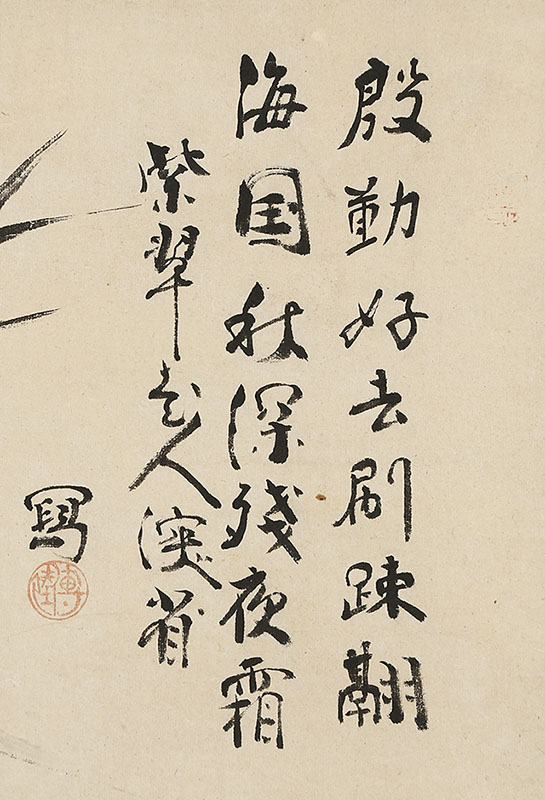 殷勤好去刷疎翮
海国秋深残夜霜
紫翠老人深省
寫
傅陸